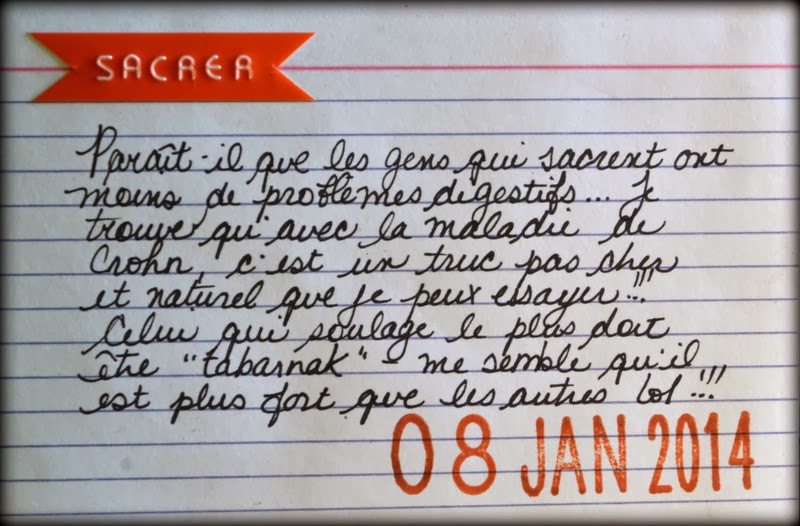 SACRER
Paraît-il que les gens qui sacrent ont
moins de problèmes digestifs... Je
trouve qu'avec la maladie de
Crohn, c'est un truc pas cher
et naturel que je peux essayer...!!!
Celui qui soulage le plus doit
être "tabarnak" - me semble qu'il
est plus fort que les autres lol...!!!
08 JAN 2014